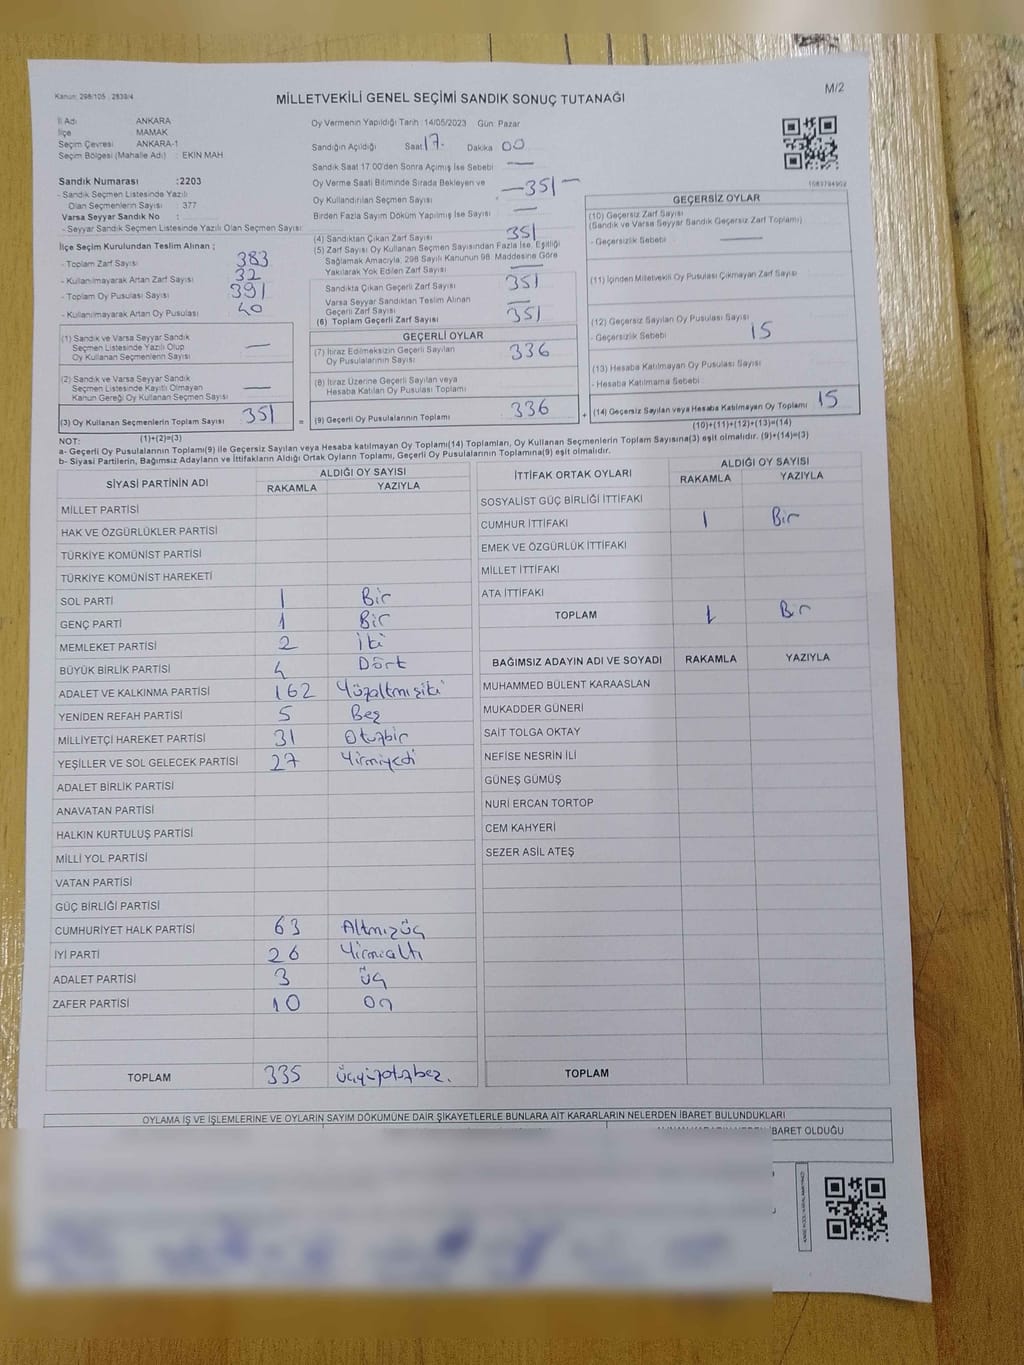 Kanun: 298/105 : 2839/4
M/2
MİLLETVEKİLİ GENEL SEÇİMİ SANDIK SONUÇ TUTANAĞI
İl Adı ANKARA
İlçe MAMAK
Seçim Çevresi ANKARA-1
Seçim Bölgesi (Mahalle Adı) : EKİN MAH
Sandık Numarası :2203
- Sandık Seçmen Listesinde Yazılı
Olan Seçmenlerin Sayısı : 377
Varsa Seyyar Sandık No :
- Seyyar Sandık Seçmen Listesinde Yazılı Olan Seçmen Sayısı:
İlçe Seçim Kurulundan Teslim Alınan ;
- Toplam Zarf Sayısı 383
- Kullanılmayarak Artan Zarf Sayısı 32
- Toplam Oy Pusulası Sayısı 391
- Kullanılmayarak Artan Oy Pusulası 40
(1) Sandık ve Varsa Seyyar Sandık
Seçmen Listesinde Yazılı Olup
Oy Kullanan Seçmenlerin Sayısı —
(2) Sandık ve Varsa Seyyar Sandık
Seçmen Listesinde Kayıtlı Olmayan
Kanun Gereği Oy Kullanan Seçmen Sayısı —
(3) Oy Kullanan Seçmenlerin Toplam Sayısı 351 =
(1)+(2)=(3)
Oy Vermenin Yapıldığı Tarih :14/05/2023 Gün: Pazar
Sandığın Açıldığı Saat 17. Dakika 00
Sandık Saat 17.00'den Sonra Açımış İse Sebebi —
Oy Verme Saati Bitiminde Sırada Bekleyen ve
Oy Kullandırılan Seçmen Sayısı — 351 —
Birden Fazla Sayım Döküm Yapılmış İse Sayısı : —
(4) Sandıktan Çıkan Zarf Sayısı 351
(5) Zarf Sayısı Oy Kullanan Seçmen Sayısından Fazla İse, Eşitliği
Sağlamak Amacıyla, 298 Sayılı Kanunun 98. Maddesine Göre
Yakılarak Yok Edilen Zarf Sayısı —
Sandıkta Çıkan Geçerli Zarf Sayısı 351
Varsa Seyyar Sandıktan Teslim Alınan
Geçerli Zarf Sayısı —
(6) Toplam Geçerli Zarf Sayısı 351
GEÇERLİ OYLAR
(7) İtiraz Edilmeksizin Geçerli Sayılan
Oy Pusulalarının Sayısı 336
(8) İtiraz Üzerine Geçerli Sayılan veya
Hesaba Katılan Oy Pusulası Toplamı
(9) Geçerli Oy Pusulalarının Toplamı 336 +
1583794902
GEÇERSİZ OYLAR
(10) Geçersiz Zarf Sayısı
(Sandık ve Varsa Seyyar Sandık Geçersiz Zarf Toplamı)
- Geçersizlik Sebebi —
(11) İçinden Milletvekili Oy Pusulası Çıkmayan Zarf Sayısı
(12) Geçersiz Sayılan Oy Pusulası Sayısı
- Geçersizlik Sebebi 15
(13) Hesaba Katılmayan Oy Pusulası Sayısı
- Hesaba Katılmama Sebebi
(14) Geçersiz Sayılan veya Hesaba Katılmayan Oy Toplamı 15
(10)+(11)+(12)+(13)=(14)
NOT:
a- Geçerli Oy Pusulalarının Toplamı(9) ile Geçersiz Sayılan veya Hesaba katılmayan Oy Toplamı(14) Toplamları, Oy Kullanan Seçmenlerin Toplam Sayısına(3) eşit olmalıdır. (9)+(14)=(3)
b- Siyasi Partilerin, Bağımsız Adayların ve İttifakların Aldığı Ortak Oyların Toplamı, Geçerli Oy Pusulalarının Toplamına(9) eşit olmalıdır.
SİYASİ PARTİNİN ADI ALDIĞI OY SAYISI
RAKAMLA YAZIYLA
MİLLET PARTİSİ
HAK VE ÖZGÜRLÜKLER PARTİSİ
TÜRKİYE KOMÜNİST PARTİSİ
TÜRKİYE KOMÜNİST HAREKETİ
SOL PARTİ 1 Bir
GENÇ PARTİ 1 Bir
MEMLEKET PARTİSİ 2 İki
BÜYÜK BİRLİK PARTİSİ 4 Dört
ADALET VE KALKINMA PARTİSİ 162 Yüzaltmışiki
YENİDEN REFAH PARTİSİ 5 Beş
MİLLİYETÇİ HAREKET PARTİSİ 31 Otuzbir
YEŞİLLER VE SOL GELECEK PARTİSİ 27 Yirmiyedi
ADALET BİRLİK PARTİSİ
ANAVATAN PARTİSİ
HALKIN KURTULUŞ PARTİSİ
MİLLİ YOL PARTİSİ
VATAN PARTİSİ
GÜÇ BİRLİĞİ PARTİSİ
CUMHURİYET HALK PARTİSİ 63 Altmışüç
İYİ PARTİ 26 Yirmialtı
ADALET PARTİSİ 3 Üç
ZAFER PARTİSİ 10 On
TOPLAM 335 üçyüzotuzbeş.
İTTİFAK ORTAK OYLARI ALDIĞI OY SAYISI
RAKAMLA YAZIYLA
SOSYALİST GÜÇ BİRLİĞİ İTTİFAKI
CUMHUR İTTİFAKI 1 Bir
EMEK VE ÖZGÜRLÜK İTTİFAKI
MİLLET İTTİFAKI
ATA İTTİFAKI
TOPLAM 1 Bir
BAĞIMSIZ ADAYIN ADI VE SOYADI RAKAMLA YAZIYLA
MUHAMMED BÜLENT KARAASLAN
MUKADDER GÜNERİ
SAİT TOLGA OKTAY
NEFİSE NESRİN İLİ
GÜNEŞ GÜMÜŞ
NURİ ERCAN TORTOP
CEM KAHYERİ
SEZER ASİL ATEŞ
TOPLAM
OYLAMA İŞ VE İŞLEMLERİNE VE OYLARIN SAYIM DÖKÜMÜNE DAİR ŞİKAYETLERLE BUNLARA AİT KARARLARIN NELERDEN İBARET BULUNDUKLARI
İBARET OLDUĞU